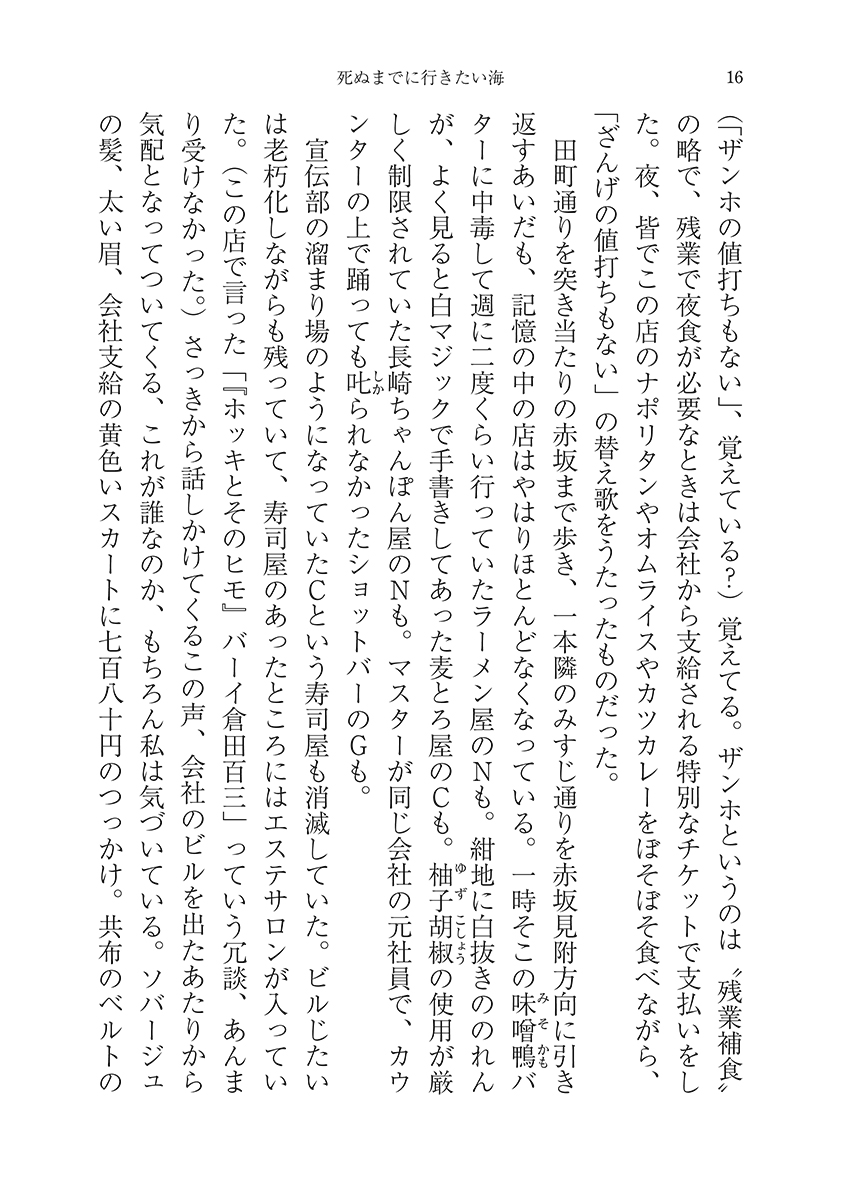 死ぬまでに行きたい海
16
（「ザンホの値打ちもない」、覚えている？）覚えてる。ザンホというのは〝残業補食〟
の略で、残業で夜食が必要なときは会社から支給される特別なチケットで支払いをし
た。夜、皆でこの店のナポリタンやオムライスやカツカレーをぼそぼそ食べながら、
「ざんげの値打ちもない」の替え歌をうたったものだった。
　田町通りを突き当たりの赤坂まで歩き、一本隣のみすじ通りを赤坂見附方向に引き
返すあいだも、記憶の中の店はやはりほとんどなくなっている。一時そこの味噌鴨バ
みそ かも
ターに中毒して週に二度くらい行っていたラーメン屋のNも。紺地に白抜きののれん
が、よく見ると白マジックで手書きしてあった麦とろ屋のCも。柚子胡椒の使用が厳
ゆず こしょう
しく制限されていた長崎ちゃんぽん屋のNも。マスターが同じ会社の元社員で、カウ
ンターの上で踊っても叱られなかったショットバーのGも。
しか
　宣伝部の溜まり場のようになっていたCという寿司屋も消滅していた。ビルじたい
は老朽化しながらも残っていて、寿司屋のあったところにはエステサロンが入ってい
た。（この店で言った「『ホッキとそのヒモ』バーイ倉田百三」っていう冗談、あんま
り受けなかった。）さっきから話しかけてくるこの声、会社のビルを出たあたりから
気配となってついてくる、これが誰なのか、もちろん私は気づいている。ソバージュ
の髪、太い眉、会社支給の黄色いスカートに七百八十円のつっかけ。共布のベルトの